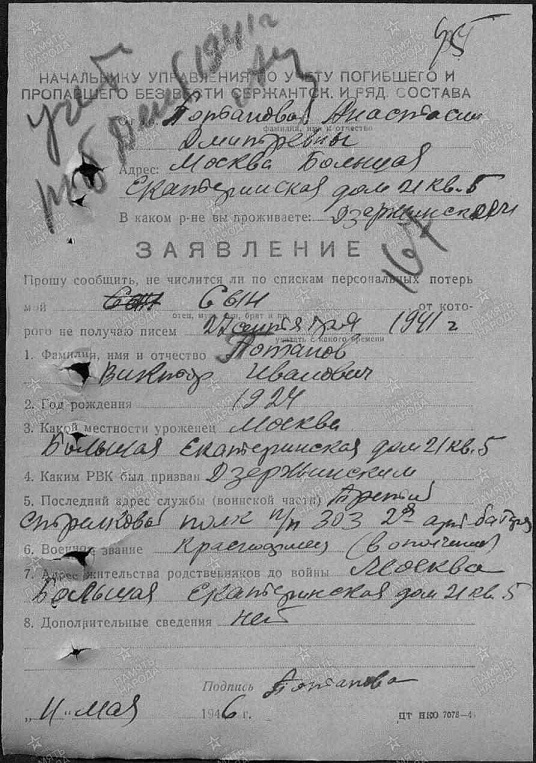 45
учет
декб 1941 г
НАЧАЛЬНИКУ УПРАВЛЕНИЯ ПО УЧЕТУ ПОГИБШЕГО И
ПРОПАВШЕГО БЕЗ ВЕСТИ СЕРЖАНТСК. И РЯД. СОСТАВА
Потаповой Анастасии
фамилия, имя и отчество
Дмитревны
Адрес: Москва Большая
Екатеринская дом 21 кв. 5
В каком р-не вы проживаете: Дзержинский
167
ЗАЯВЛЕНИЕ
Прошу сообщить, не числится ли по спискам персональных потерь
мой Сын от кото-
отец, муж, сын, брат и пр.
рого не получаю писем 27 сентября 1941 г
указать с какого времени
1. Фамилия, имя и отчество Потапов
Виктор Иванович
2. Год рождения 1924
3. Какой местности уроженец Москва
Большая Екатеринская дом 21 кв. 5
4. Каким РВК был призван Дзержинским
5. Последний адрес службы (воинской части) Третий
стрелковой полк п/п 303 2я арт батрея
6. Военное звание Красноармеец (вополчении)
7. Адрес жительства родственников до войны Москва
Большая Екатеринская дом 21 кв. 5
8. Дополнительные сведения нет
Подпись Потапова
„11" мая 1946 г.
ЦТ НКО 7078-4
ПАМЯТЬ НАРОДА